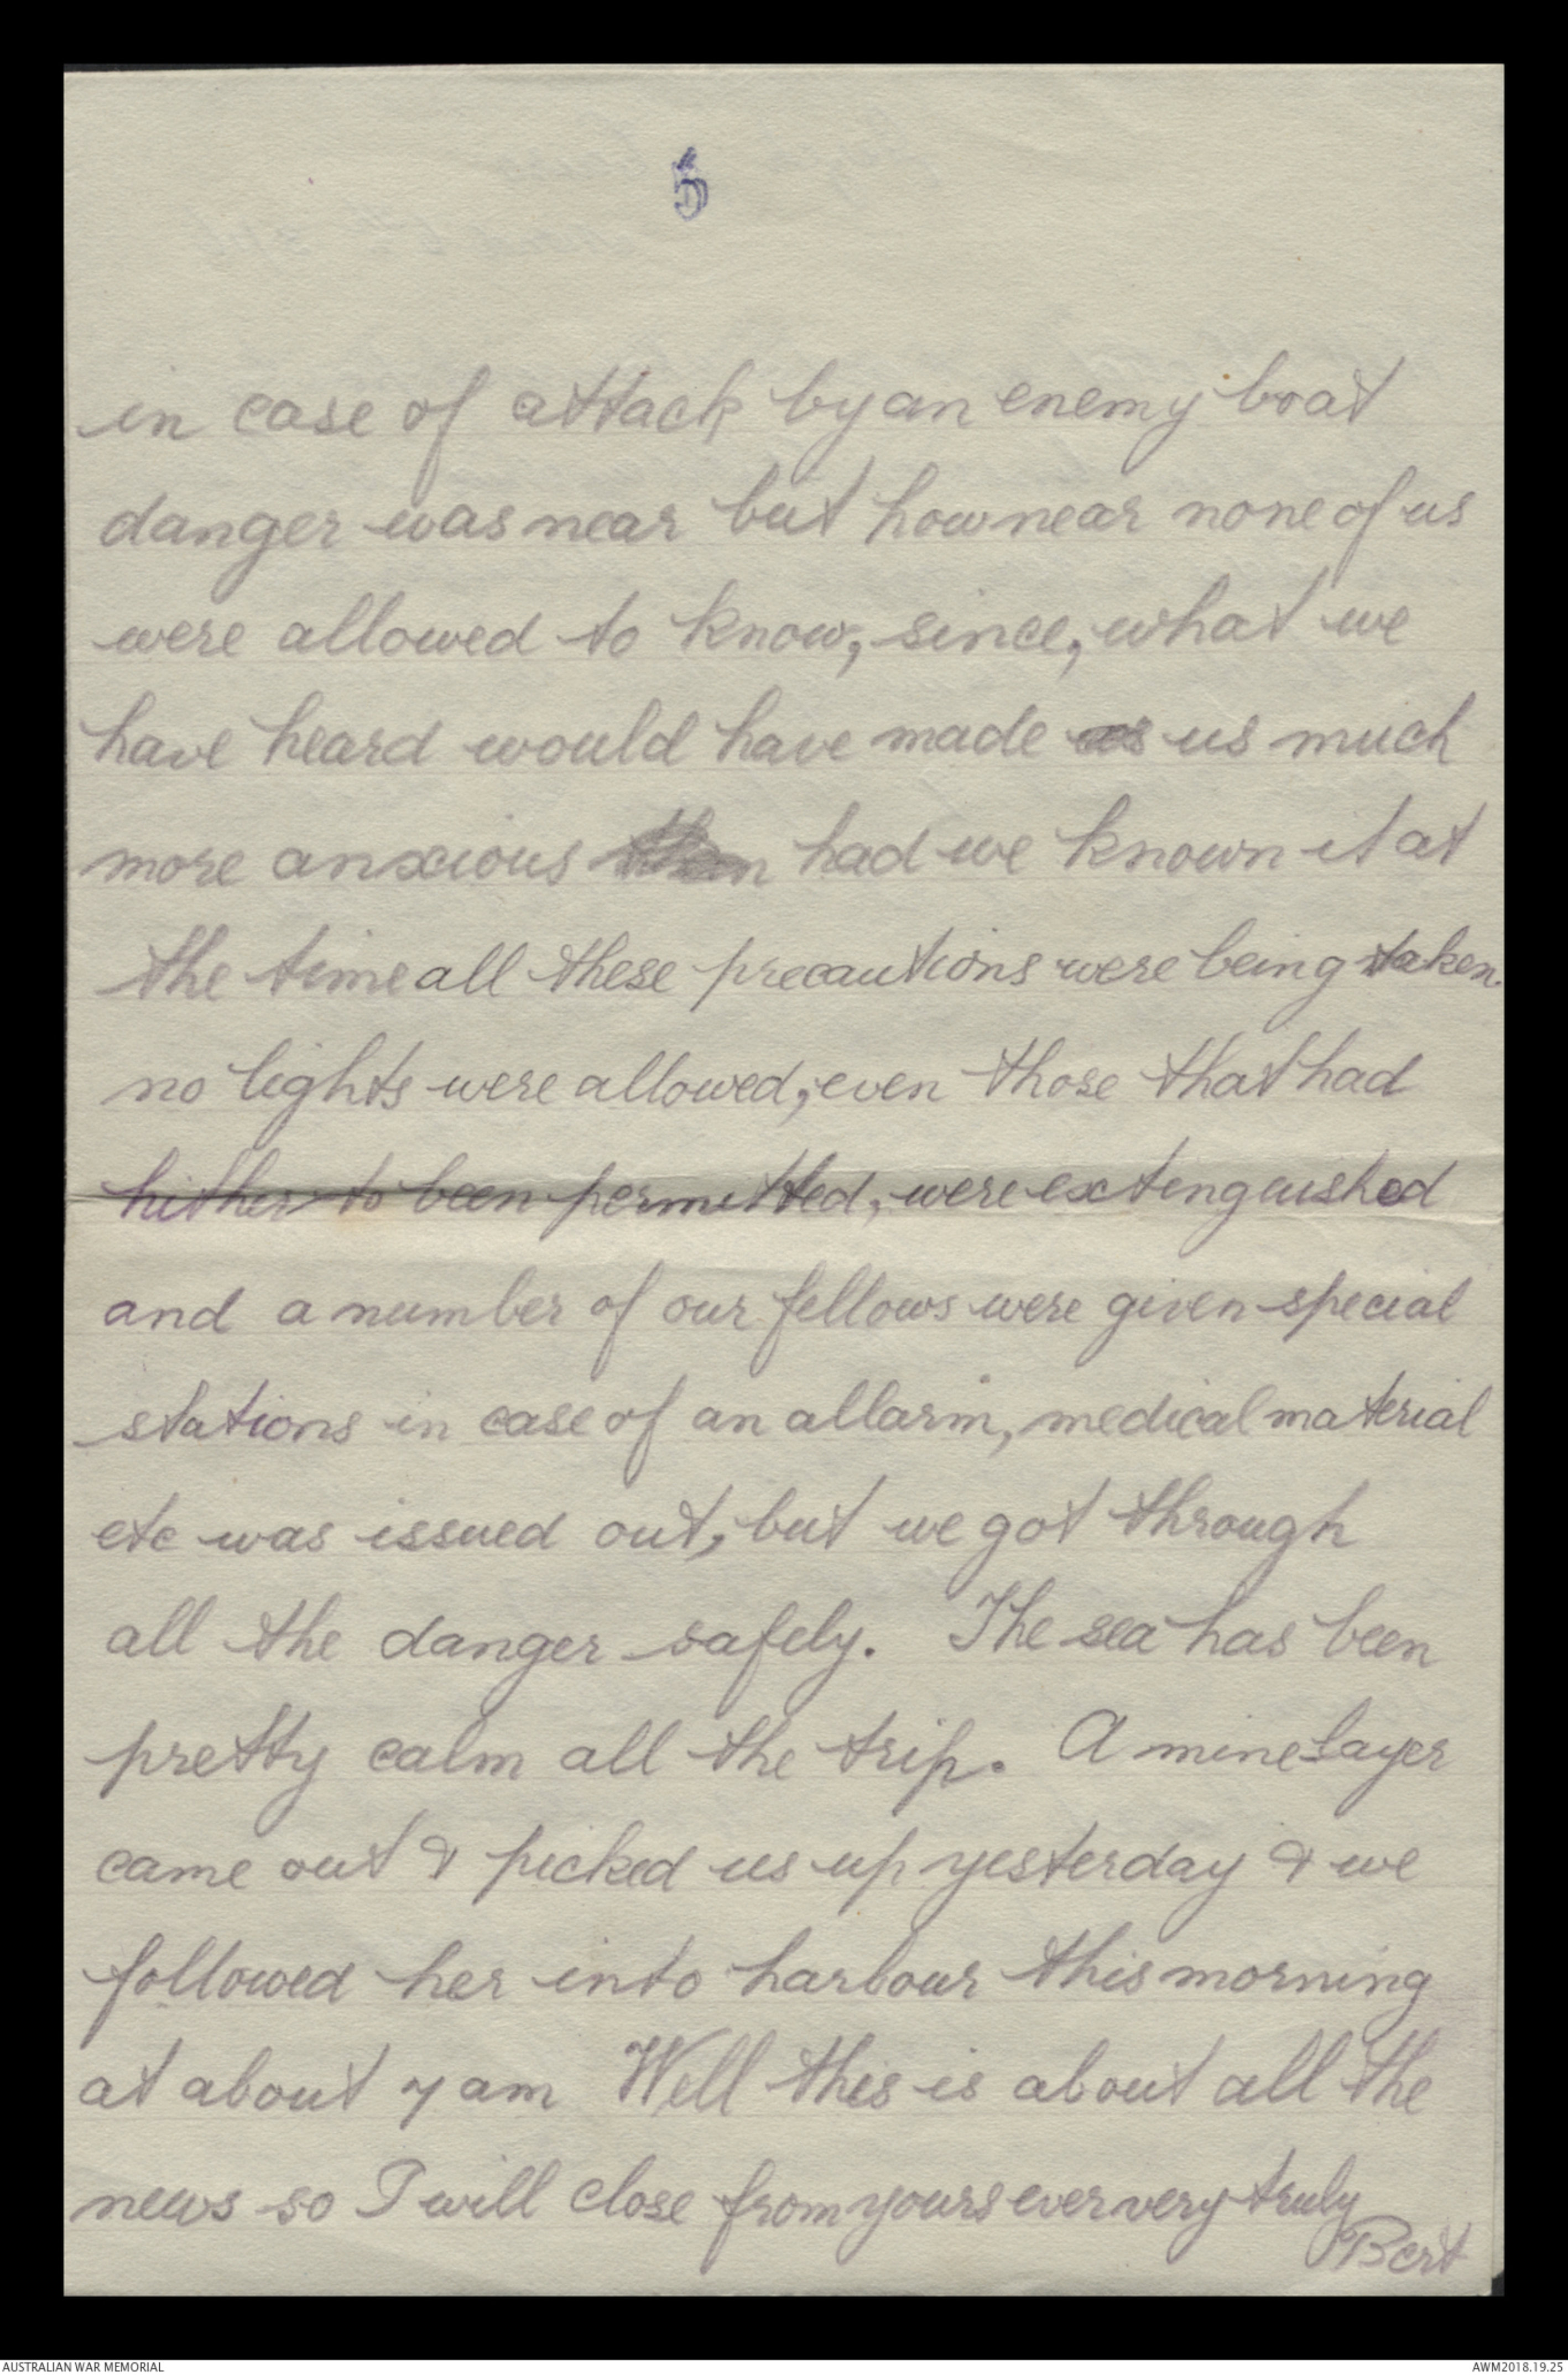 5
in case of attack by an enemy boat
danger was near but how near none of us
were allowed to know, since, what we
have heard would have made as us much
more anxious than had we known it at
the time all these precautions were being taken.
no lights were allowed, even those that had
hither to been permitted, were extenguished
and a number of our fellows were given special
stations in case of an allarm, medical material
etc was issued out, but we got through
all the danger safely. The sea has been
pretty calm all the trip. A mine layer
came out & picked us up yesterday & we
followed her into harbour this morning
at about 7 am Well this is about all the
news so I will close from yours ever very truly
Bert
AUSTRALIAN WAR MEMORIAL
AWM2018.19.25